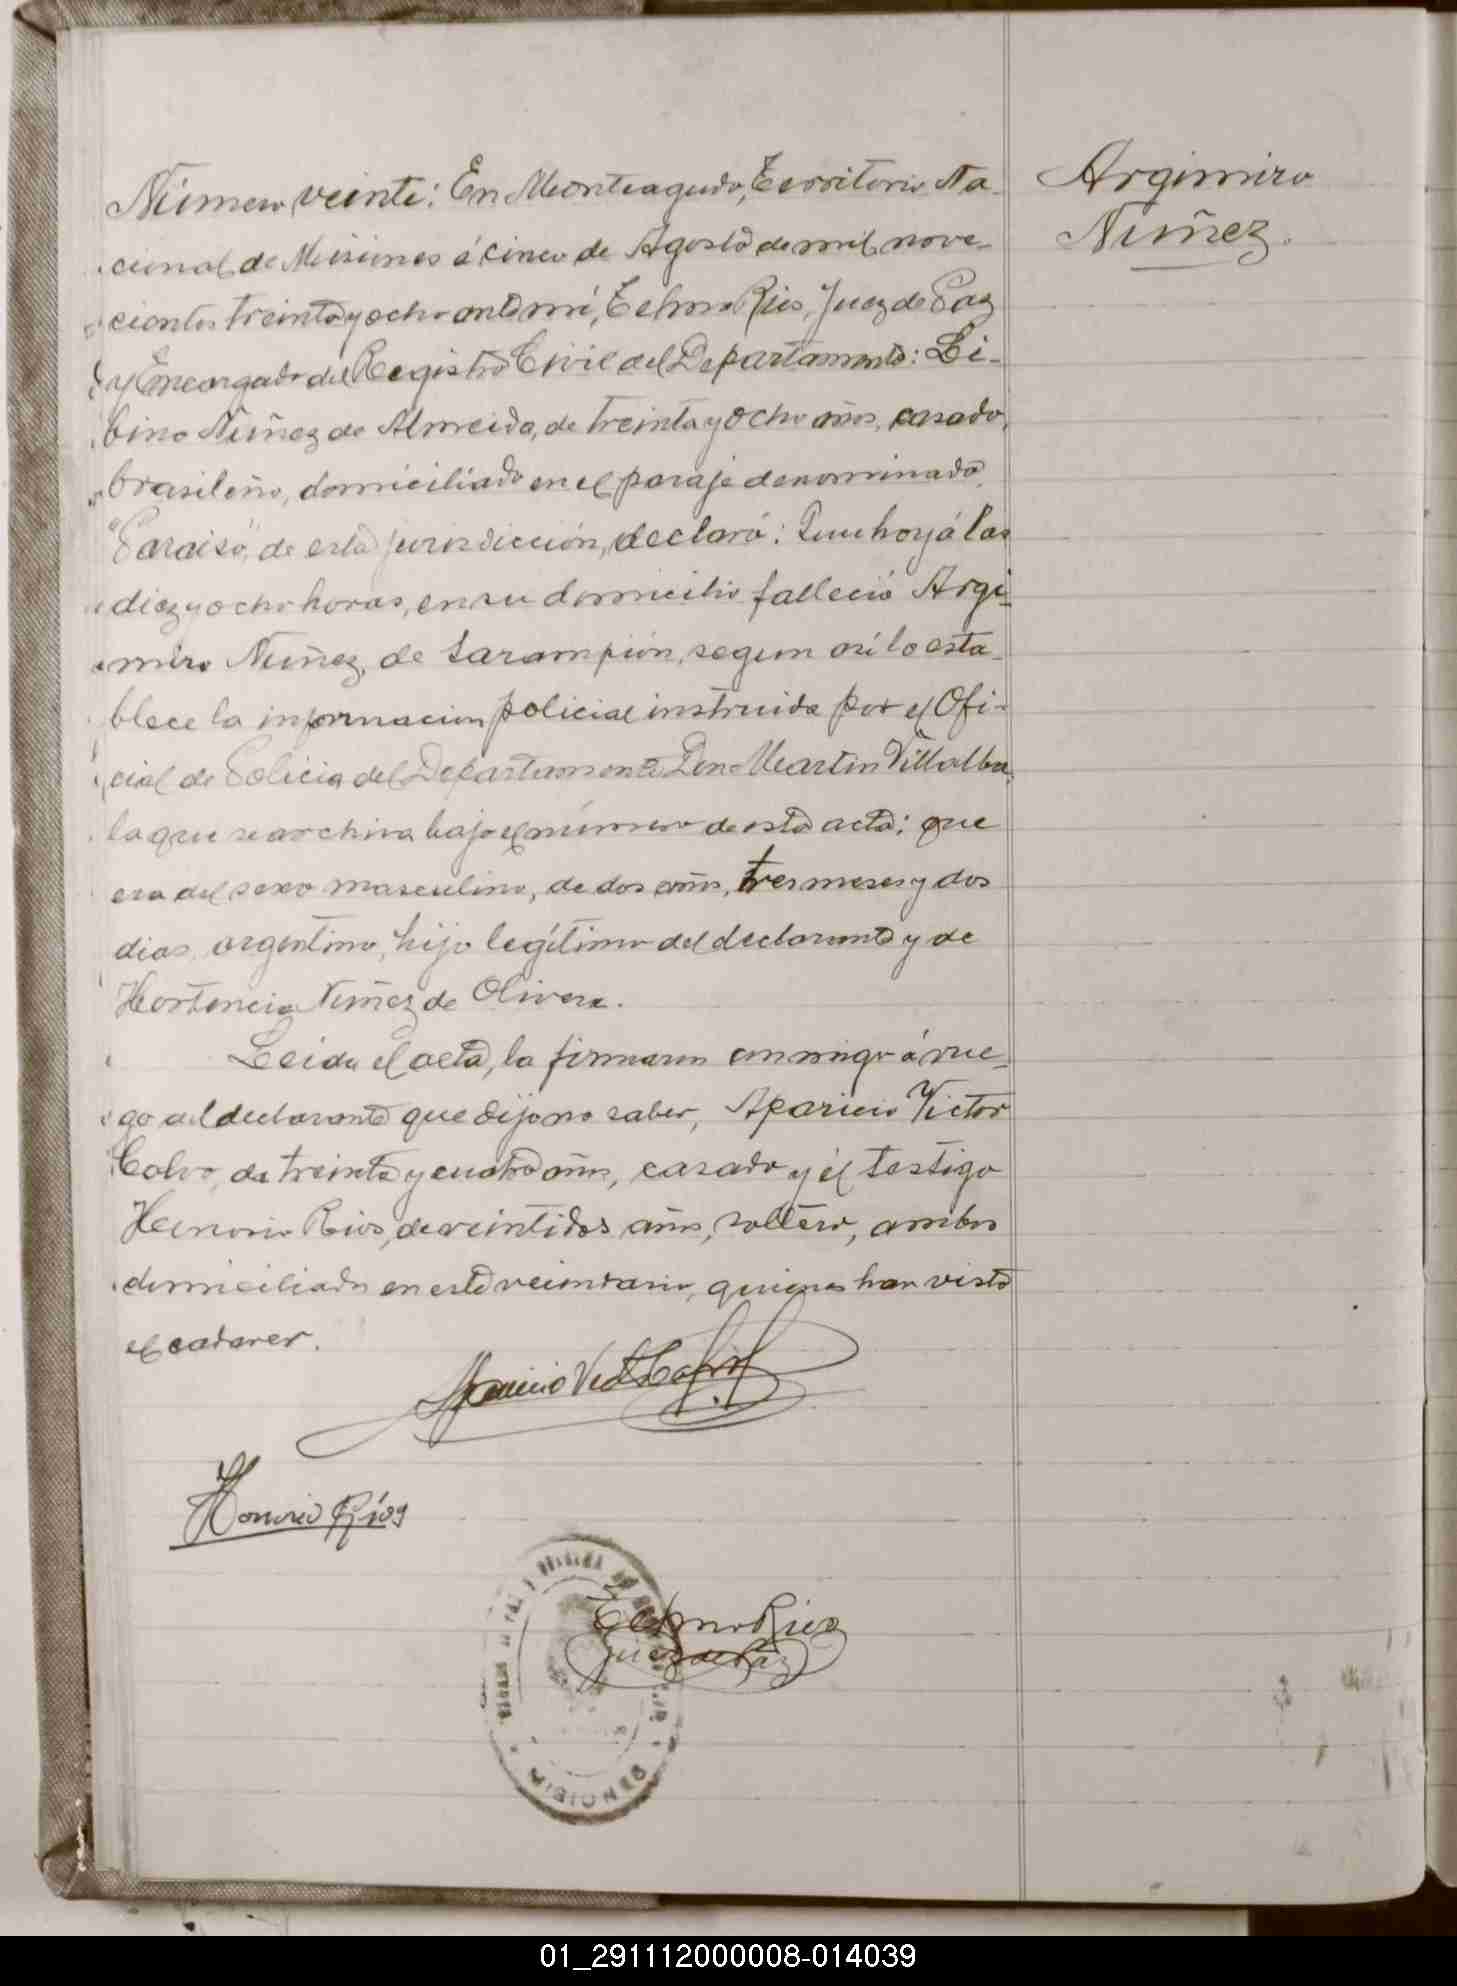 Número veinte: En Monteagudo, Territorio Na-
cional de Misiones á cinco de Agosto de mil nove-
cientos treinta y ocho ante mí, Telmo Rios, Juez de Paz
y Encargado del Registro Civil del Departamento: Li-
bino Nuñez de Almeida, de treinta y ocho años, casado,
brasileño, domiciliado en el paraje denominado
"Paraiso", de esta jurisdicción, declaró: Que hoy á las
diez y ocho horas, en su domicilio falleció Argi-
miro Nuñez, de sarampión, segun asi lo esta-
blece la informacion policial instruida por el Ofi-
cial de Policia del Departamento Don Martin Villalba,
la que se archiva bajo el número de esta acta; que
era del sexo masculino, de dos años, tres meses y dos
dias, argentino, hijo legítimo del declarante y de
Hortencia Nuñez de Olivera.
Leida el acta, la firmaron conmigo á rue-
go del declarante que dijo no saber, Aparicio Victor
Calvo, de treinta y cuatro años, casado y el testigo
Honorio Rios, de veintidos años, soltero, ambos
domiciliados en este vecindario, quienes han visto
el cadaver.
Argimiro
Nuñez.
Aparicio Vict Calvo
Honorio Ríos
Telmo Rios
Juez de Paz
MISIONES
01_291112000008-014039